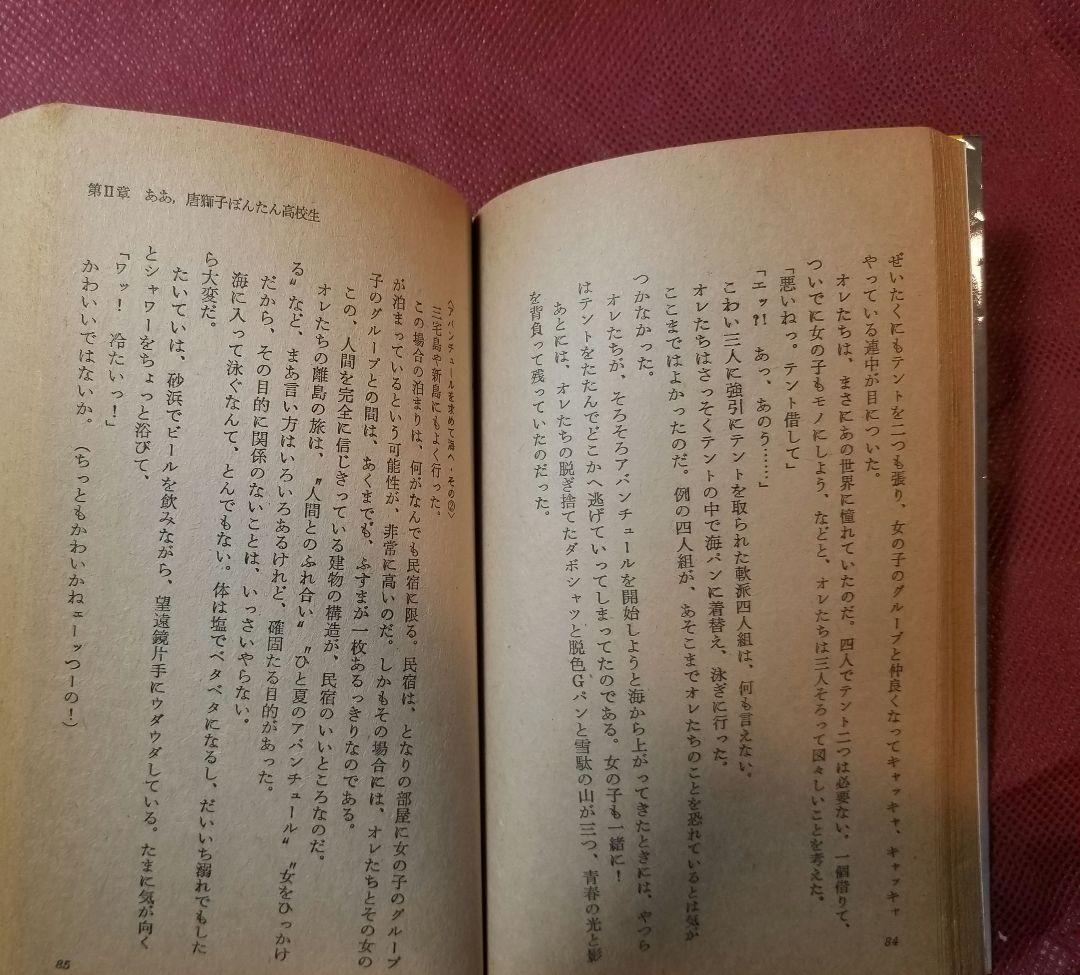 ぜいたくにもテントを二つも張り、女の子のグループと仲良くなってキャッキャ、キャッキャ
やっている連中が目についた。
オレたちは、まさにあの世界に憧れていたのだ。四人でテント二つは必要ない。一個借りて、
ついでに女の子もモノにしよう、などと、オレたちは三人そろって図々しいことを考えた。
「悪いねっ。テント借して」
「エッ?! あっ、あのう……」
こわい三人に強引にテントを取られた軟派四人組は、何も言えない。
オレたちはさっそくテントの中で海パンに着替え、泳ぎに行った。
ここまではよかったのだ。例の四人組が、あそこまでオレたちのことを恐れているとは気が
つかなかった。
オレたちが、そろそろアバンチュールを開始しようと海から上がってきたときには、やつら
はテントをたたんでどこかへ逃げていってしまってたのである。女の子も一緒に!
あとには、オレたちの脱ぎ捨てたダボシャツと脱色Gパンと雪駄の山が三つ、青春の光と影
を背負って残っていたのだった。
84
第II章 ああ,唐獅子ぼんたん高校生
〈アバンチュールを求めて海へ・その②〉
三宅島や新島にもよく行った。
この場合の泊まりは、何がなんでも民宿に限る。民宿は、となりの部屋に女の子のグループ
が泊まっているという可能性が、非常に高いのだ。しかもその場合には、オレたちとその女の
子のグループとの間は、あくまでも、ふすまが一枚あるっきりなのである。
この、人間を完全に信じきっている建物の構造が、民宿のいいところなのだ。
オレたちの離島の旅は、〝人間とのふれ合い〟〝ひと夏のアバンチュール〟〝女をひっかけ
る〟など、まあ言い方はいろいろあるけれど、確固たる目的があった。
だから、その目的に関係のないことは、いっさいやらない。
海に入って泳ぐなんて、とんでもない。体は塩でベタベタになるし、だいいち溺れでもした
ら大変だ。
たいていは、砂浜でビールを飲みながら、望遠鏡片手にウダウダしている。たまに気が向く
とシャワーをちょっと浴びて、
「ワッ! 冷たいっ!」
かわいいではないか。(ちっともかわいかねェーッつーの!)
85